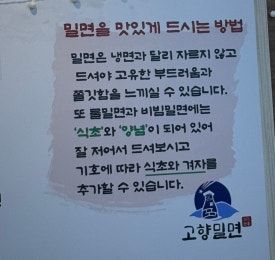 밀면을 맛있게 드시는 방법
밀면은 냉면과 달리 자르지 않고
드셔야 고유한 부드러움과
쫄깃함을 느끼실 수 있습니다.
또 물밀면과 비빔밀면에는
'식초'와 '양념'이 되어 있어
잘 저어서 드셔보시고
기호에 따라 식초와 겨자를
추가할 수 있습니다.
고향밀면